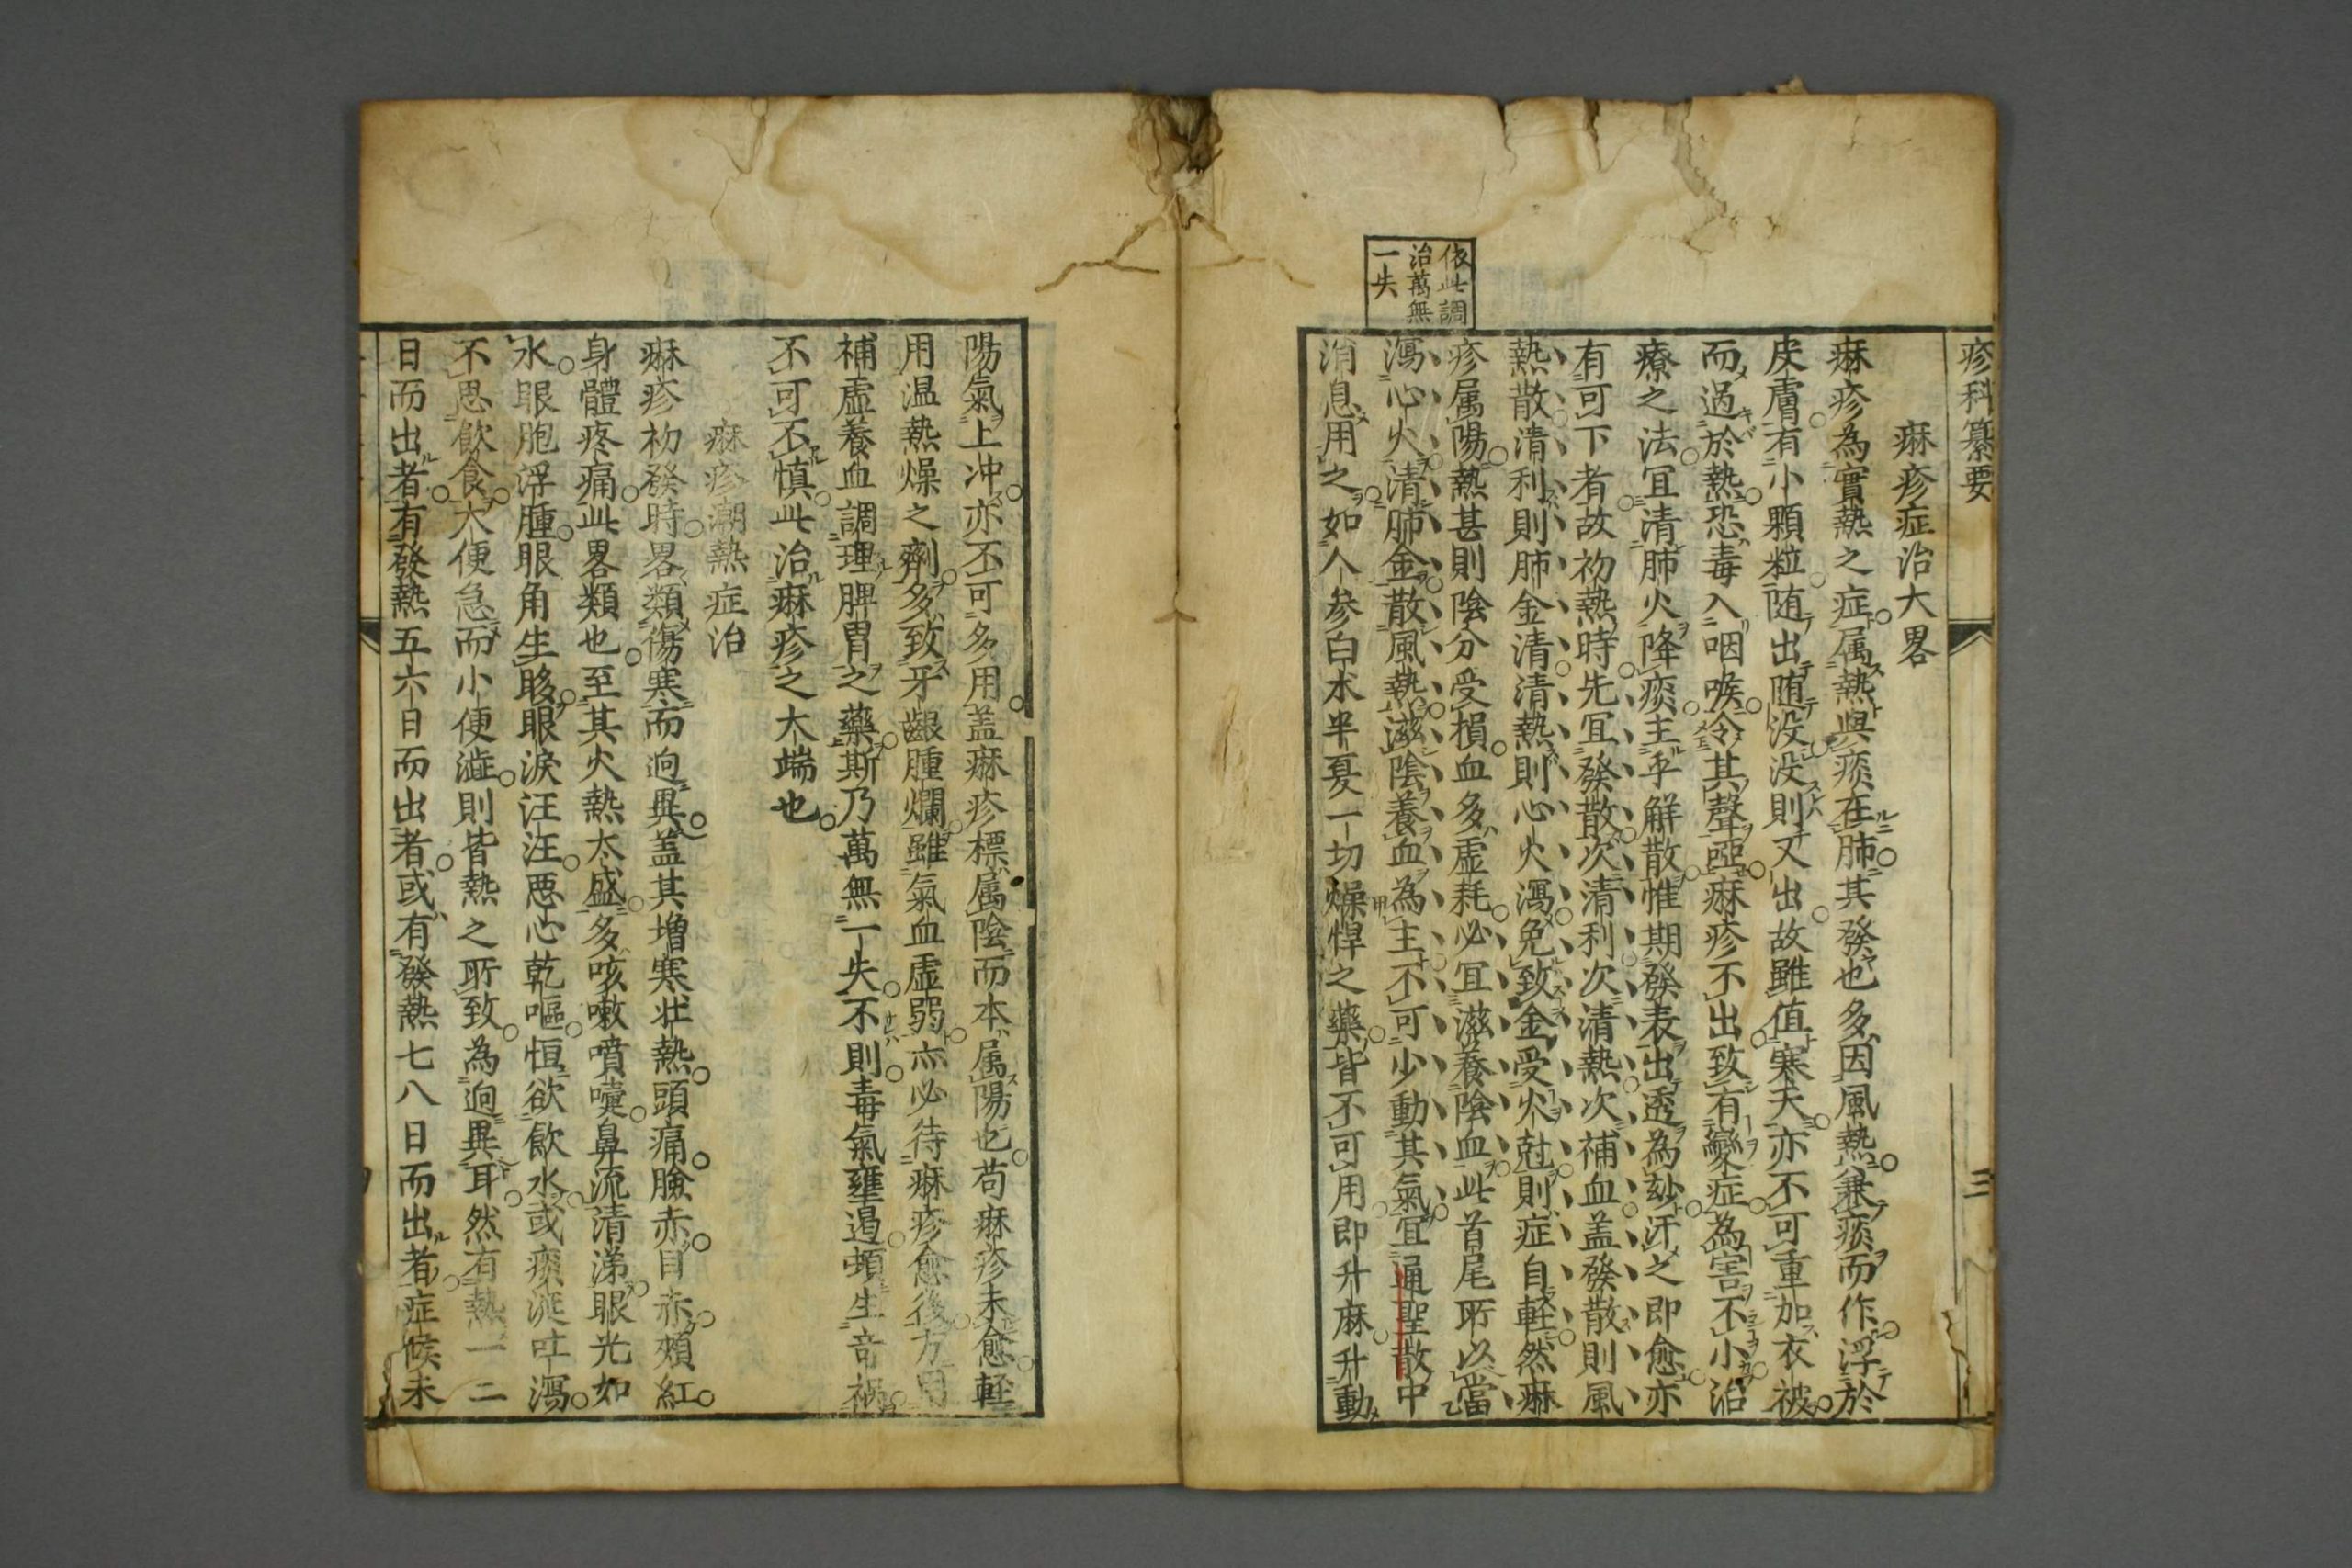 疹科纂要
三
依此調
治萬無
一失
痳疹症治大畧
痳疹為實熱之症属熱與痰在肺其發也多因風熱兼痰而作浮於
皮膚有小顆粒随出随没没則又出故雖值寒天亦不可重加衣被
而過於熱恐毒入咽喉令其聲啞痳疹不出致有變症為害不小治
療之法冝清肺火降痰主乎解散惟期發表出透為玅汗之即愈亦
有可下者故初熱時先冝發散次清利次清熱次補血盖發散則風
熱散清利則肺金清清熱則心火瀉免致金受火尅則症自軽然痳
疹属陽熱甚則陰分受損血多虚耗必冝滋養陰血此首尾所以當
瀉心火清肺金散風熱滋陰養血為主不可少動其氣冝通聖散中
消息用之如人参白朮半夏一切燥悍之藥皆不可用即升麻升動
陽氣上冲亦不可多用盖痳疹標属陰而本属陽也苟痳疹未愈軽
用温熱燥之劑多致牙齦腫爛雖氣血虚弱亦必待痳疹愈後方用
補虚養血調理脾胃之藥斯乃萬無一失不則毒氣壅遏頓生竒禍
不可不慎此治痳疹之大端也
痳疹潮熱症治
痳疹初發時畧類傷寒而逈異盖其増寒壮熱頭痛臉赤目赤頰紅
身體疼痛此畧類也至其火熱太盛多咳嗽噴嚏鼻流清涕眼光如
水眼胞浮腫眼角生眵眼淚汪汪悪心乾嘔恒欲飲水或痰涎吐瀉
不思飲食大便急而小便澁則皆熱之所致為逈異耳然有熱一二
日而出者有發熱五六日而出者或有發熱七八日而出者症候未